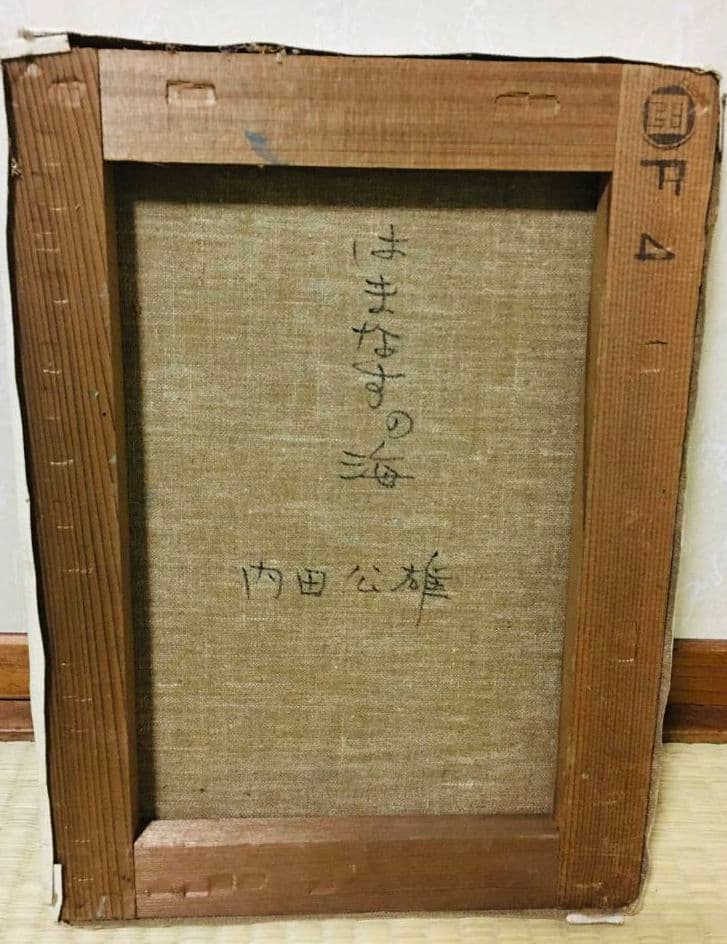 はまなすの海
内田公雄
F4